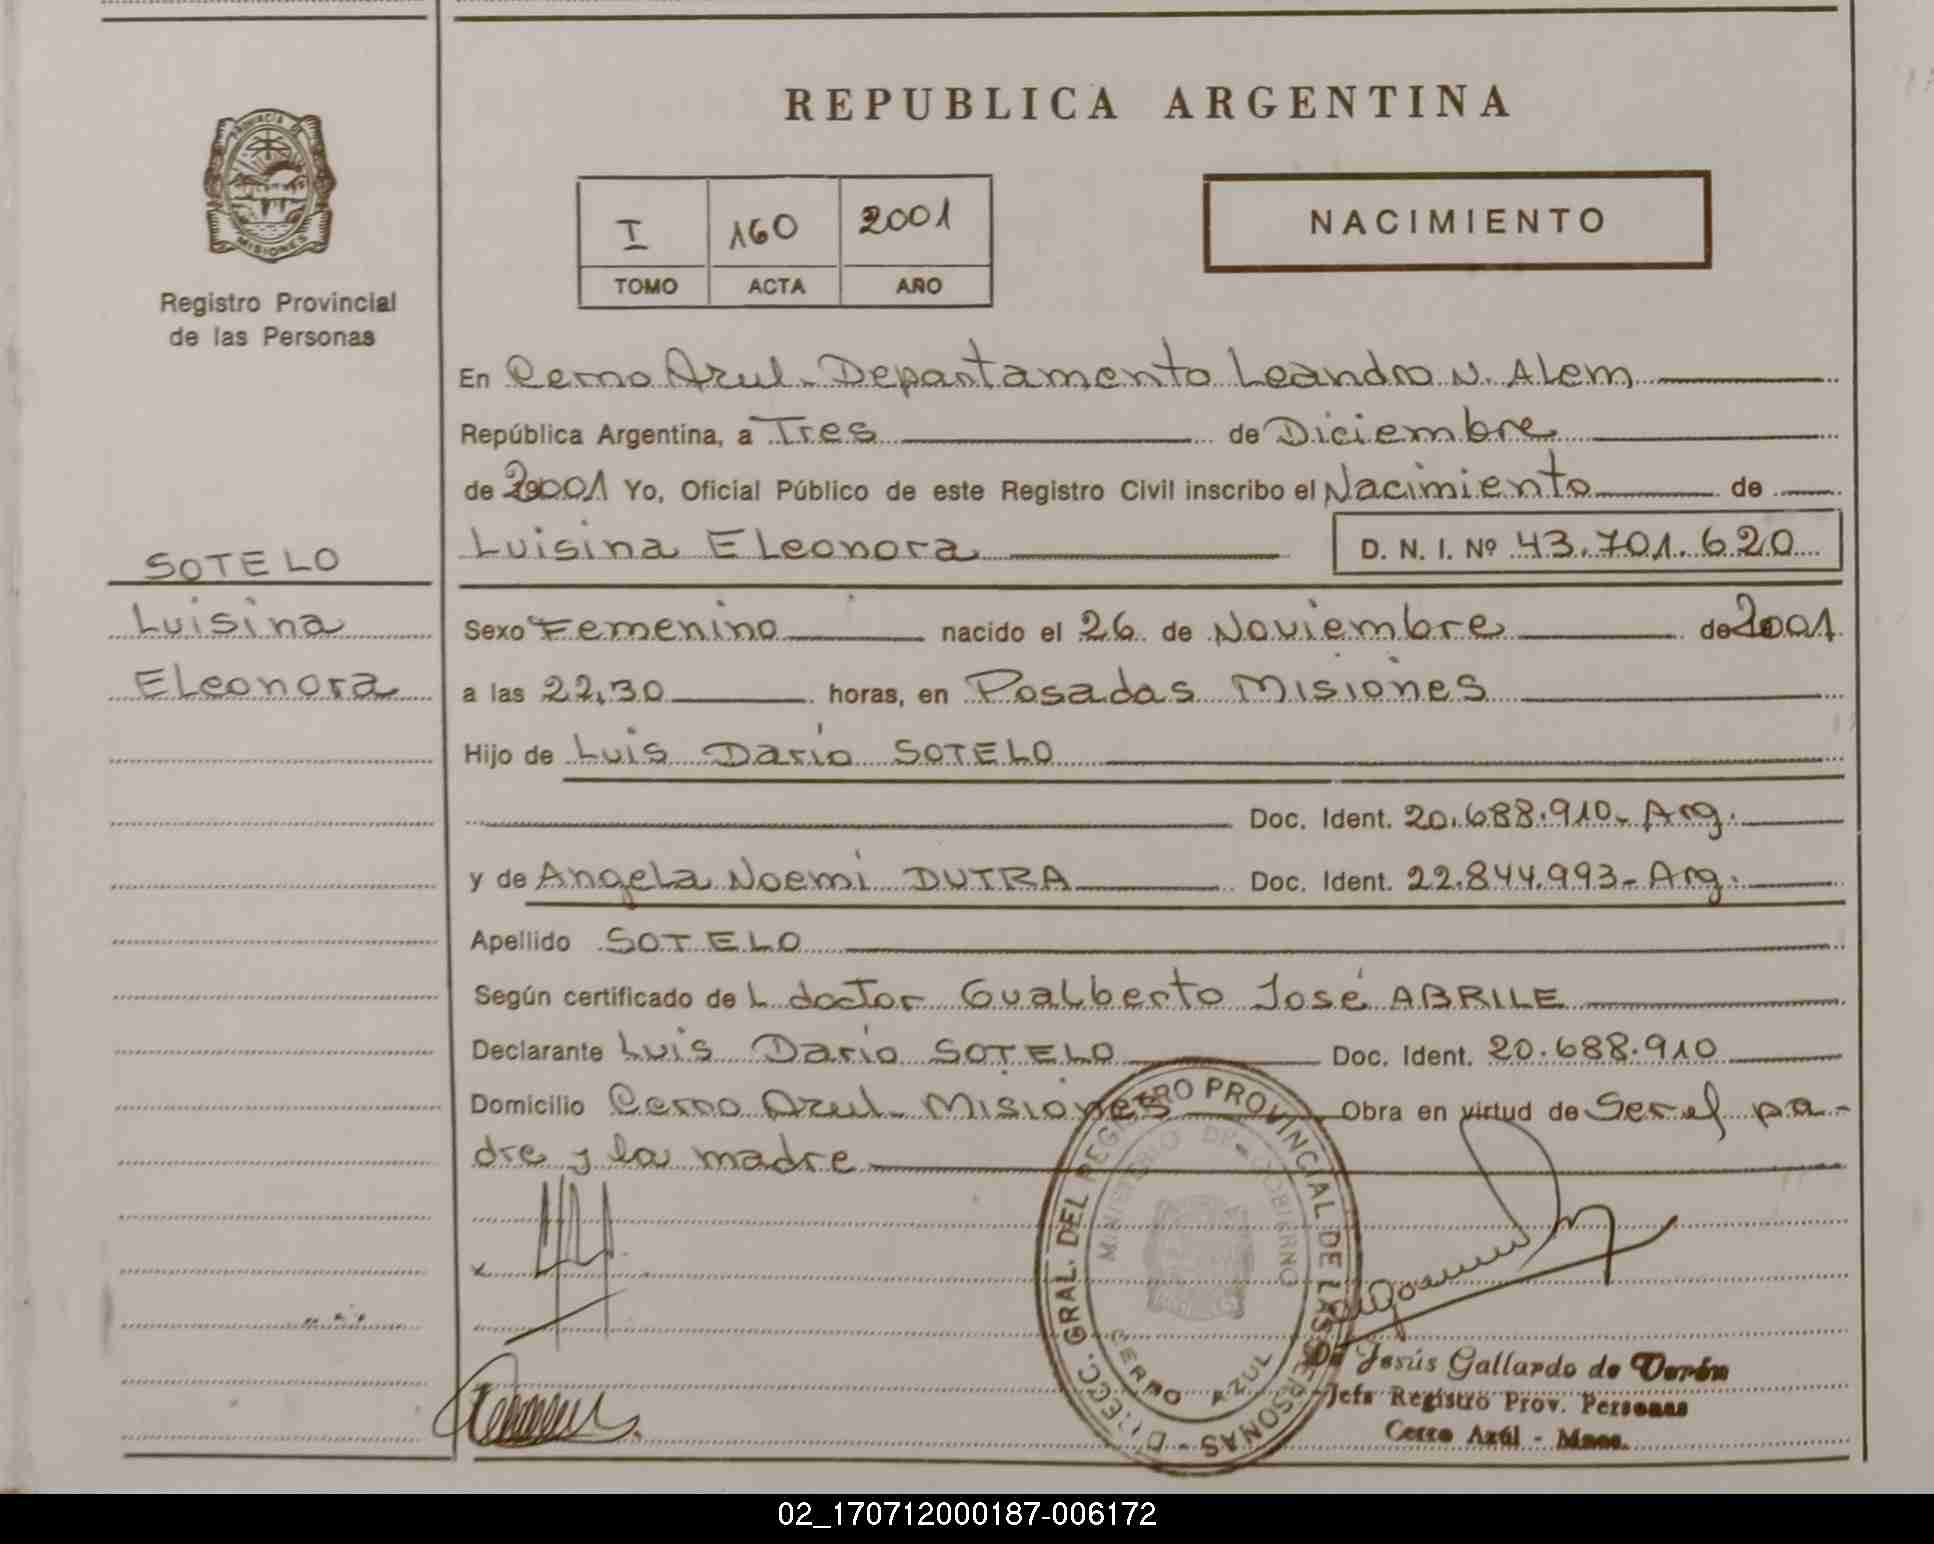 REPUBLICA ARGENTINA
PROVINCIA DE
MISIONES
Registro Provincial
de las Personas
I 160 2001
TOMO ACTA AÑO
NACIMIENTO
En Cerro Azul - Departamento Leandro N. Alem
República Argentina, a Tres de Diciembre
de 2001 Yo, Oficial Público de este Registro Civil inscribo el Nacimiento de
Luisina Eleonora D. N. I. Nº 43.701.620
SOTELO
Luisina
Eleonora
Sexo Femenino nacido el 26 de Noviembre de 2001
a las 22,30 horas, en Posadas Misiones
Hijo de Luis Darío SOTELO
Doc. Ident. 20.688.910- Arg.
y de Angela Noemi DUTRA Doc. Ident. 22.844.993- Arg.
Apellido SOTELO
Según certificado de L doctor Gualberto José ABRILE
Declarante Luis Darío SOTELO Doc. Ident. 20.688.910
Domicilio Cerro Azul - Misiones Obra en virtud de Ser el pa-
dre y la madre
DIRECC. GRAL. DEL REGISTRO PROVINCIAL DE LAS PERSONAS
MINISTERIO DE GOBIERNO
CERRO AZUL
De Jesús Gallardo de Verón
Jefa Registro Prov. Personas
Cerro Azúl - Mnes.
02_170712000187-006172